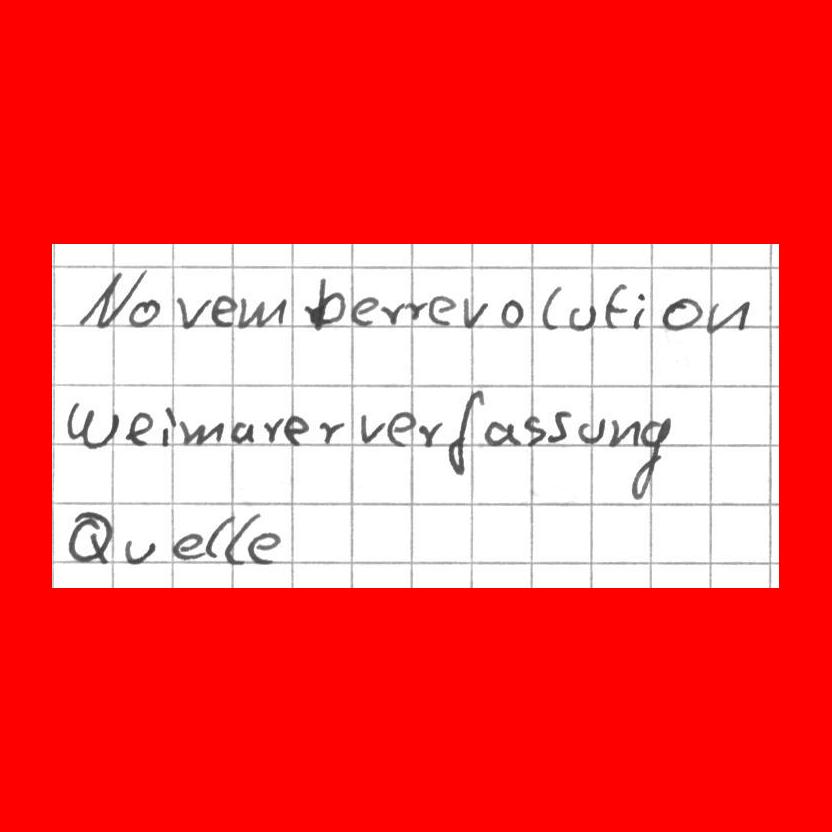 Novemberrevolution
Weimarerverfassung
Quelle